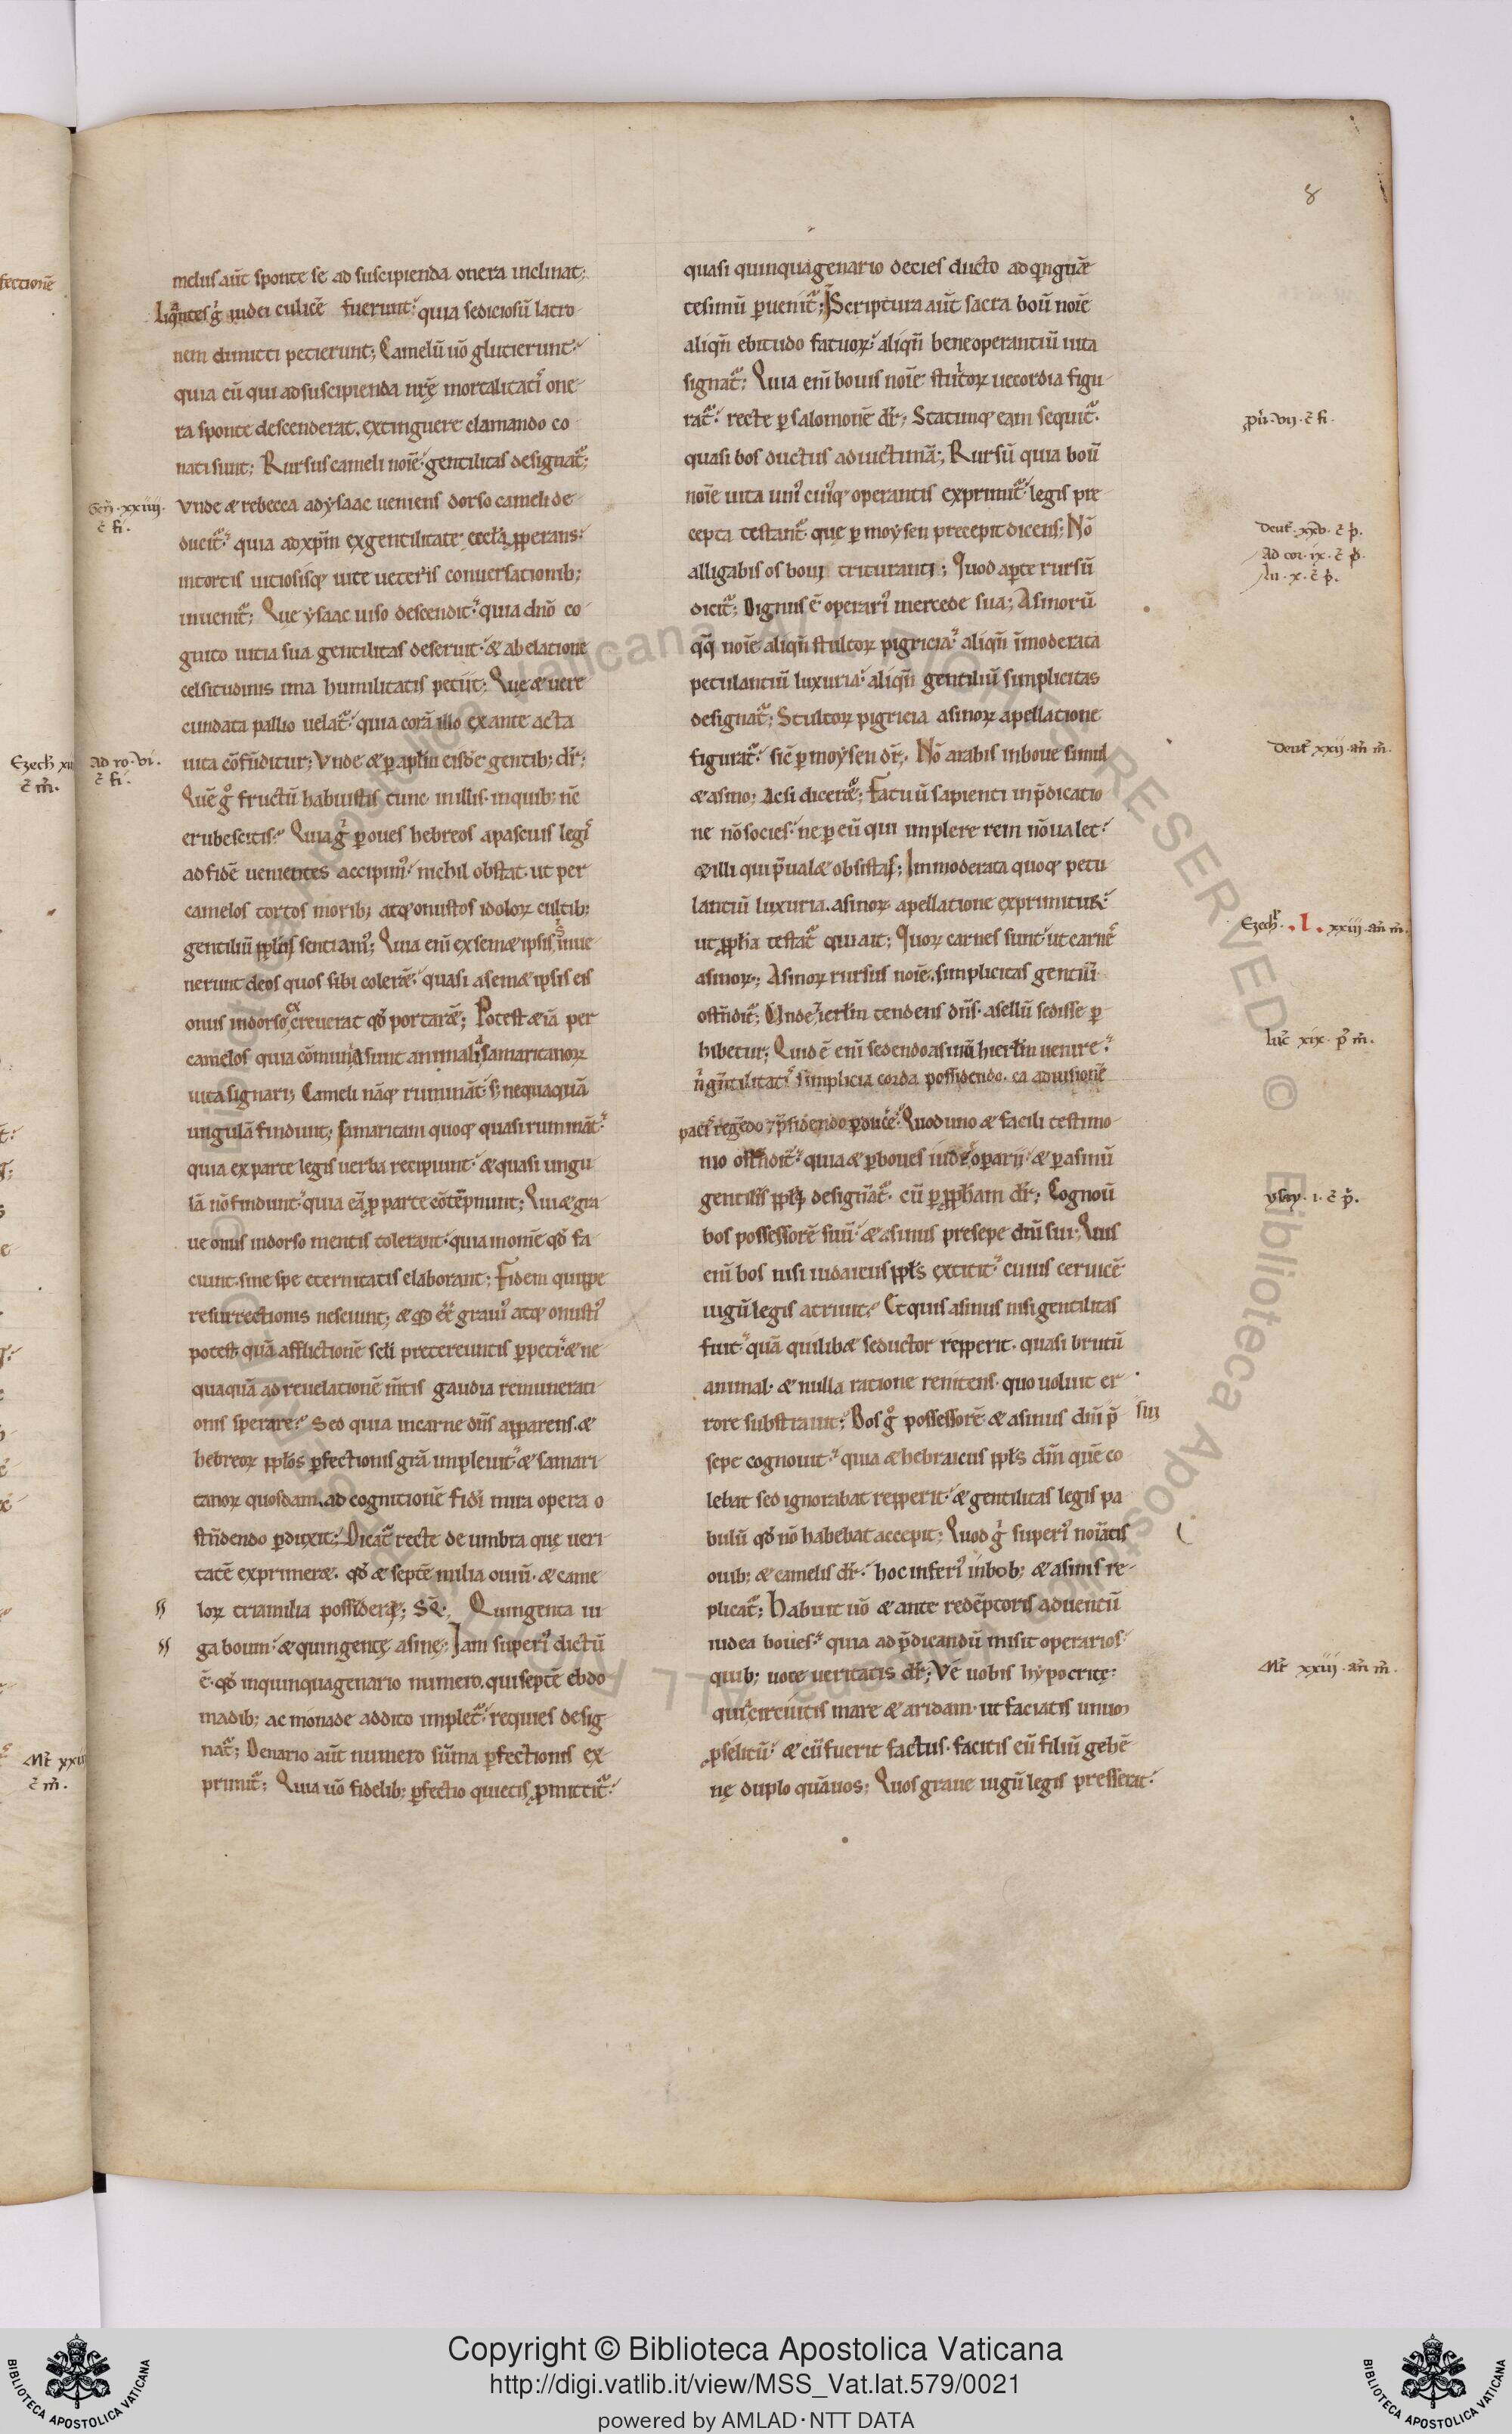 8
melus aut̄ sponte se ad suscipienda onera inclinat;
Liquantes g̊ iudei culicē fuerunt; quia sediciosū latro-
nem dimitti petierunt; Camelū uō glutierunt;
quia eū qui ad suscipienda nr̄ę mortalitatis one-
ra sponte descenderat, extinguere clamando co
nati sunt; Rursus cameli noīe gentilitas designat᷑;
Vnde & rebecca ad ysaac ueniens dorso cameli de-
ducit᷑; quia ad xp̄m ex gentilitate ecclā pꝓperans;
in tortis uitiosisq; uite ueteris conuersationib;
inuenit᷑; Que ysaac uiso descendit; quia dnō co-
gnito uitia sua gentilitas deseruit; & ab elatione
celsitudinis ima humilitatis petiit; Que & uere
cundata pallio uelat᷑; quia corā illo ex ante acta
uita cōfūditur; Vnde & p aptm̄ eisdē gentib; dr̄;
Quē g̊ fructū habuistis tunc in illis in quib; nc̄
erubescitis; Quia g̊ p oues hebreos a pascuis legis
ad fidē uenientes accipim᷒; nichil obstat ut per
camelos tortos morib; atq; onustos idoloꝝ cultib;
gentiliū ppl̄os sentiam᷒; Quia enī ex semæ ipsis inue-
nerunt deos quos sibi coleren̄t; quasi a semæ ipsis eis
onus in dorso excreuerat qđ portaren̄t; Potest & iā per
camelos quia cōmunia sunt animalia samaritanoꝝ
uita signari; Cameli nāq; rumināt; s; nequaquā
ungulā findunt; Samaritani quoq; quasi rumināt;
quia ex parte legis uerba recipiunt; & quasi ungu
lā nō findunt; quia eā p parte cōtēpnunt; Qui & gra
ue onus in dorso mentis tolerant; quia in om̄e qđ fa
ciunt sine spe eternitatis elaborant; Fidem quippe
resurrectionis nesciunt; & qđ ee᷑ graui᷒ atq; onusti᷒
potest; quā afflictionē scl̄i pretereuntis ppeti; & ne
quaquā ad reuelationē mentis gaudia remunerati
onis sperare; Sed quia in carne dn̄s apparens &
hebreoꝝ ppl̄os pfectionis grā impleuit; & samari
tanoꝝ quosdam ad cognitionē fidei mira opera o
stn̄dendo pduxit; Dicat᷑ recte de umbra que ueri
tatē exprimeræ qđ & septē milia ouiū & came
loꝝ tria milia possideræ; SQ. Quingenta iu
ga boum; & quingentę asinę; Iam superi᷒ dictū
ē qđ in quinquagenario numero, qui septē ebdo
madib; ac monade addito implet᷑; requies desig
nat᷑; Denario aut̄ numero sūma pfectionis ex-
primit᷑; Quia uō fidelib; pfectio quietis pmittit᷑;
quasi quinquagenario decies ducto ad qingn̄ę
tesimū peruenit᷑; Scriptura aut̄ sacra boū noīe
aliqn̄ ebitudo fatuoꝝ; aliqn̄ bene operantiū uita
signat᷑; Quia enī bouis noīe stultoꝝ uecordia figu-
rat᷑; recte p salomonē dr̄; Statimq; eam sequit᷑
quasi bos ductus ad uictimā; Rursū quia boū
noīe uita uni᷒ cui᷒q; operantis exprimit᷑; legis pre
cepta testant᷑ que p moysen precepit dicens; Nō
alligabis os boui trituranti; Quod apte rursū
dicit᷑; Dignus ē operari᷒ mercede sua; Asinorū
qq̄ noīe aliqn̄ stultoꝝ pigricia; aliqn̄ īmoderata
petulantiū luxuria; aliqn̄ gentiliū simplicitas
designat᷑; Stultoꝝ pigricia asinoꝝ apellatione
figurat᷑; sic̄ p moysen dr̄; Nō arabis in boue simul
& asino; Ac si diceret᷑; Fatuū sapienti in p̄dicatio
ne nō socies; ne p eū qui implere rem nō ualet;
& illi qui p̄ualæ obsistas; Immoderata quoq; petu
lantiū luxuria asinoꝝ apellatione exprimitur;
ut pph̄a testat᷑ qui ait; Quoꝝ carnes sunt ut carnes
asinoꝝ; Asinoꝝ rursus noīe simplicitas gentiliū
ostn̄dit᷑; Vnde ierl̄m tendens dn̄s asellū sedisse p
hibetur; Quid ē enī sedendo asinū hierl̄m uenire;
n̄ gn̄tilitatis simplicia corda possidendo, ea ad uisionē
pacis regēdo & p̄sidendo pducere; Quod uno & facili testimo-
nio ostn̄dit᷑; quia & p boues iudęę oparii; & p asinū
gentiles ppl̄i designant᷑ cū p pph̄am dr̄; Cognouit
bos possessorē suū; & asinus presepe dn̄i sui; Quis
enī bos nisi iudaicus ppl̄s extitit; cuius ceruicē
iugū legis attriuit; Et quis asinus nisi gentilitas
fuit; quā quilibæ seductor repperit quasi brutū
animal & nulla ratione renitens quo uoluit er-
rore substrauit; Bos g̊ possessorē & asinus dn̄i p̄ sui
sepe cognouit; quia & hebraicus ppl̄s dm̄ quē co
lebat sed ignorabat repperit; & gentilitas legis pa
bulū qđ nō habebat accepit; Quod g̊ superi᷒ noiatis
ouib; & camelis dr̄; hoc inferi᷒ in bob; & asinis re-
plicat᷑; Habuit uō & ante redēptoris aduentū
iudea boues; quia ad p̄dicandū misit operarios;
quib; uoce ueritatis dr̄; Vę uobis hypocritę;
qui circuitis mare & aridam ut faciatis unum
pselitū; & cū fuerit factus facitis eū filiū gehē
nę duplo quā uos; Quos graue iugū legis presserat;
fectionē
Gen̄ xxiiij.
c̄ fi.
Ad ro. vi.
c̄ fi.
Ezech xii
c̄ m̄.
Mt̄ xxii
c̄ m̄.
prū. vij. c̄ fi.
Deut̄ xxv. c̄ p̄.
Ad cor. ix. c̄ p̄.
Lu. x. c̄ p̄.
Deut̄ xxij an̄ m̄.
Ezech. .l. xxiij an̄ m̄.
Luc̄ xix p᷒ m̄.
ysay. i. c̄ p̄.
Mt̄ xxiij an̄ m̄.
© Biblioteca Apostolica Vaticana ALL RIGHTS RESERVED
Copyright © Biblioteca Apostolica Vaticana
http://digi.vatlib.it/view/MSS_Vat.lat.579/0021
powered by AMLAD·NTT DATA
BIBLIOTECA APOSTOLICA VATICANA
BIBLIOTECA APOSTOLICA VATICANA